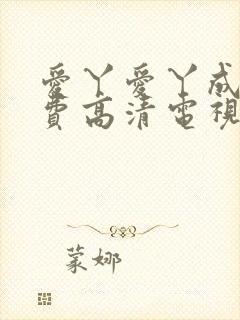 愛丫愛丫成
費高清電視
蒙娜